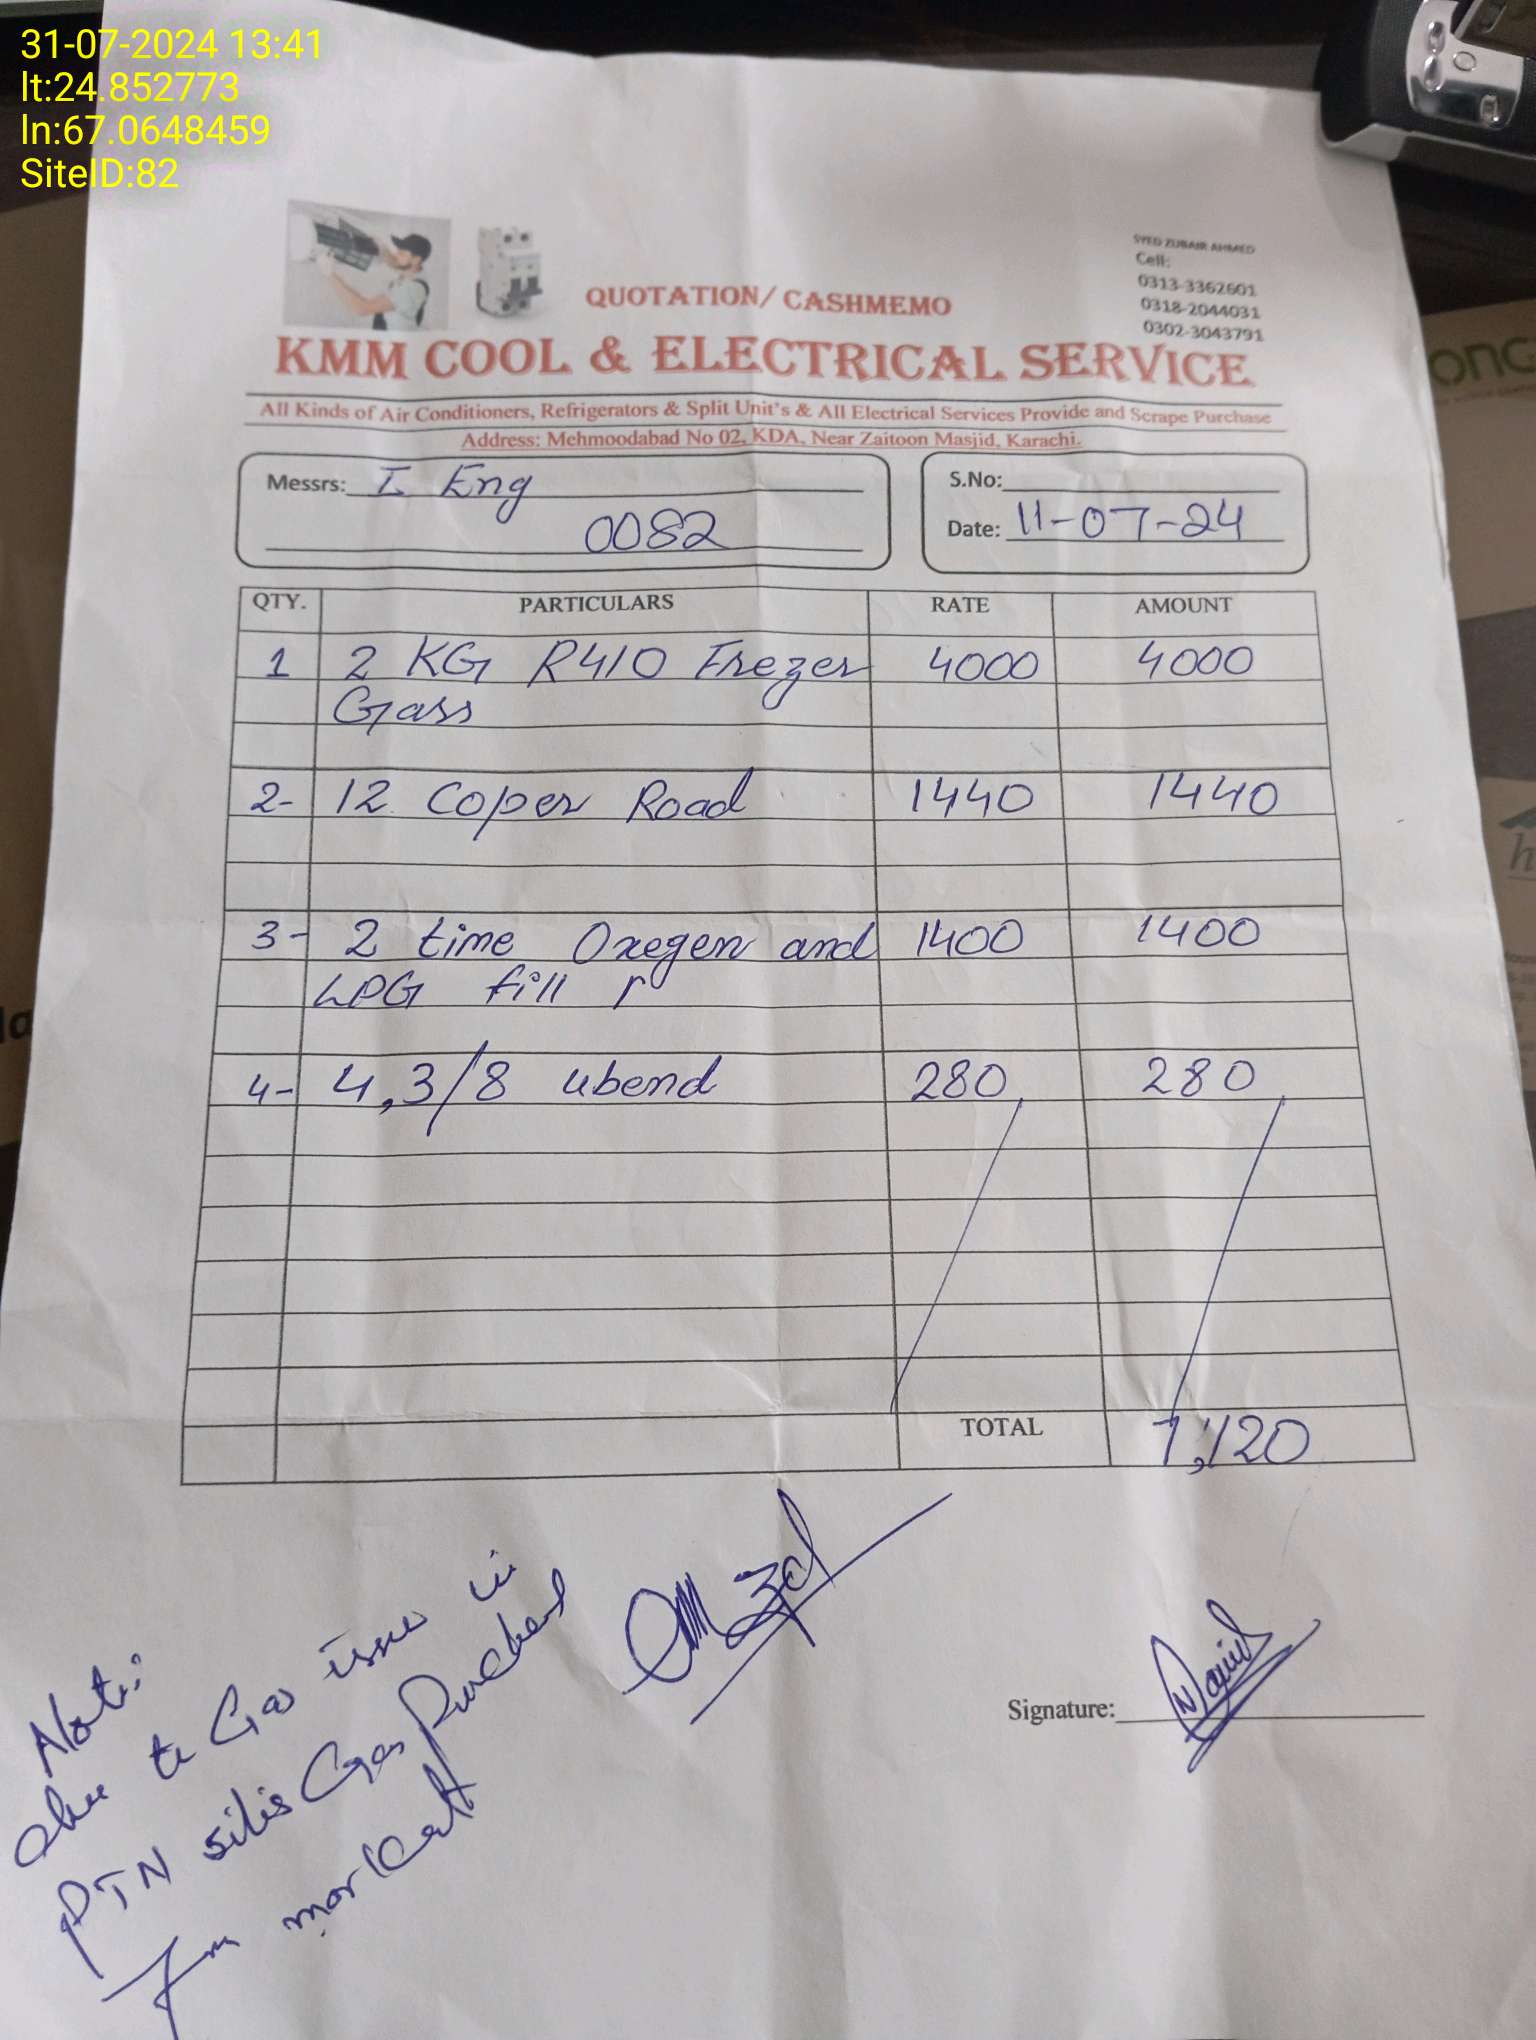 31-07-2024 13:41
lt:24.852773
ln:67.0648459
SiteID:82
SYED ZUBAIR AHMED
Cell:
0313-3362601
0318-2044031
0302-3043791
QUOTATION/ CASHMEMO
KMM COOL & ELECTRICAL SERVICE
All Kinds of Air Conditioners, Refrigerators & Split Unit's & All Electrical Services Provide and Scrape Purchase
Address: Mehmoodabad No 02, KDA, Near Zaitoon Masjid, Karachi.
Messrs: I Eng
0082
S.No:
Date: 11-07-24
QTY. PARTICULARS RATE AMOUNT
1 2 KG R410 Frezer 4000 4000
Gass
2- 12 Coper Road 1440 1440
3- 2 time Oxegen and 1400 1400
LPG fill
4- 4,3/8 ubend 280 280
TOTAL 7,120
Note:
due to Gas issue in
PTN sitis Gas Purchased
from market
Signature:
onc
h